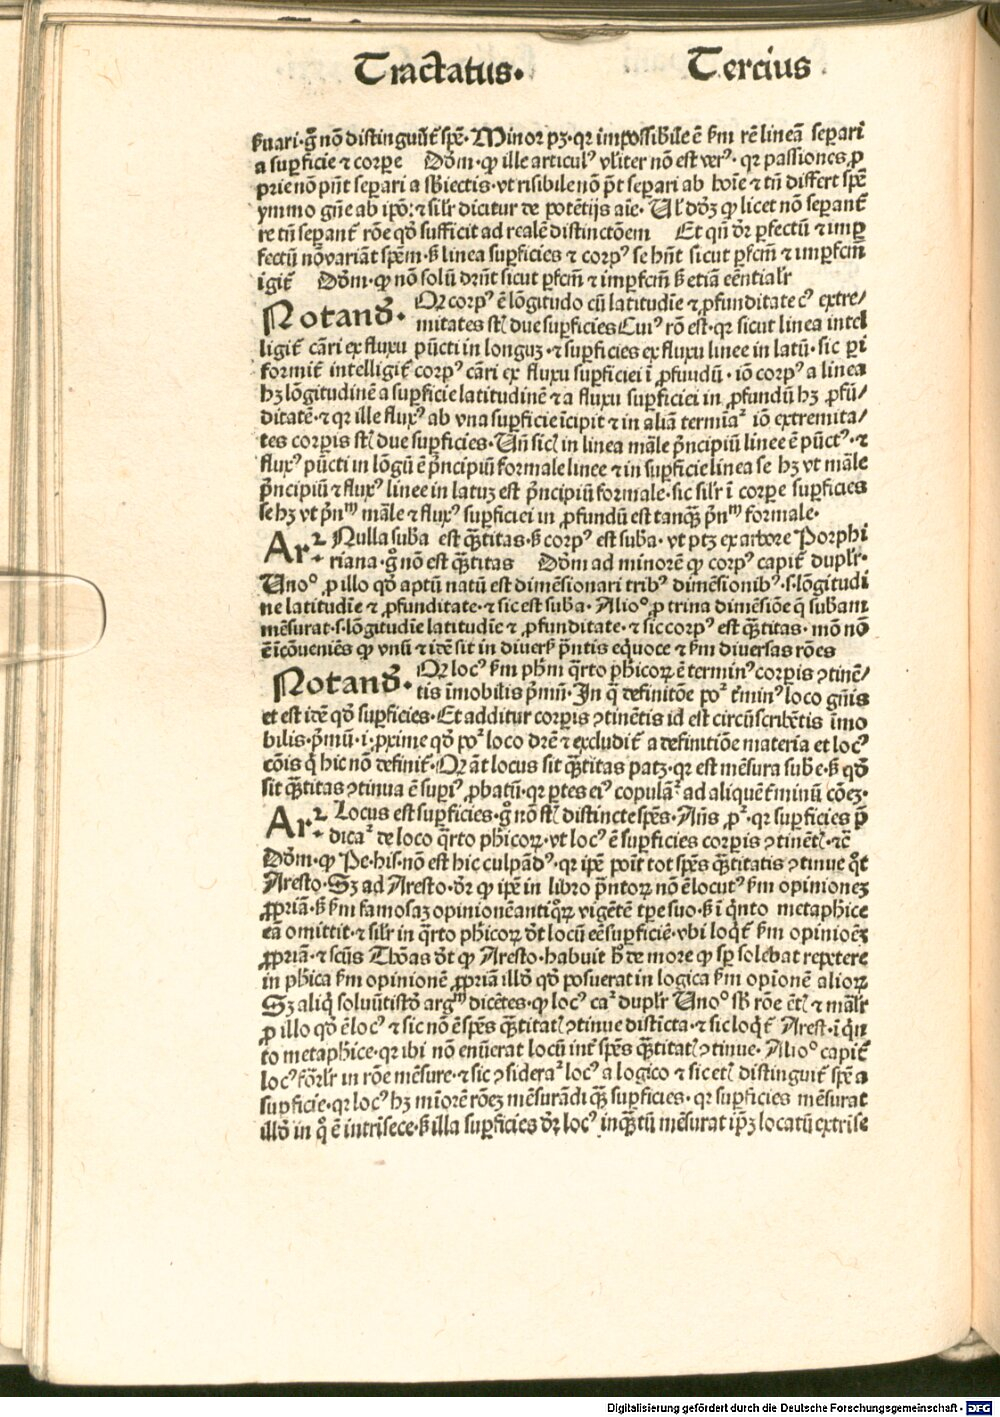 Tractatus. Tercius
ẜuari·gͦ nō distinguūt᷑ spē·Minor pꝫ·qꝛ impossibile ē ẜm rē lineā seꝑari
a suꝑficie ⁊ corꝑe Dōm·ꝙ ille articulꝰ vl̓iter nō est verꝰ·qꝛ passiones ꝓ
prie nō pn̄t seꝑari a sb̓iectis·vt risibile nō pōt seꝑari ab hoīe ⁊ tn̄ differt spē
ymmo gn̄e ab ip̄o:⁊ sil̓r dicitur de potētijs aīe·Ul̓ dōꝫ ꝙ licet nō seꝑant᷑
re tn̄ seꝑant᷑ rōe qd̓ sufficit ad realē distinctōem Et qn̄ dr̄ ꝑfectū ⁊ imꝑ
fectū nō variāt spēm·ẜ linea suꝑficies ⁊ corpꝰ se hn̄t sicut ꝑfcm̄ ⁊ imꝑfcm̄
igit᷑ Dōm·ꝙ nō solū dr̄nt sicut ꝑfcm̄ ⁊ imꝑfcm̄ ẜ etiā eēntial̓r
Notand̓· Ꝙ corpꝰ ē lōgitudo cū latitudīe ⁊ ꝓfunditate cꝰ extre/
mitates st̄ due suꝑficies Cuiꝰ rō est·qꝛ sicut linea intel
ligit᷑ cāri ex fluxu pūcti in longuꝫ·⁊ suꝑficies ex fluxu linee in latū·sic ꝑi
formit᷑ intelligit᷑ corpꝰ cāri ex fluxu suꝑficiei ī ꝓfundū·iō corpꝰ a linea
hꝫ lōgitudinē a suꝑficie latitudinē ⁊ a fluxu suꝑficiei in ꝓfundū hꝫ ꝓfū/
ditatē·⁊ qꝛ ille fluxꝰ ab vna suꝑficie īcipit ⁊ in aliā termīaᷣ iō extremita/
tes corꝑis st̄ due suꝑficies·Un̄ sic̄ in linea māle p̄ncipiū linee ē pūctꝰ·⁊
fluxꝰ pūcti in lōgū ē p̄ncipiū formale linee ⁊ in suꝑficie linea se hꝫ vt māle
p̄ncipiū ⁊ fluxꝰ linee in latuꝫ est p̄ncipiū formale·sic sil̓r ī corꝑe suꝑficies
se hꝫ vt pn̄ᵐ māle ⁊ fluxꝰ suꝑficiei in ꝓfundū est tanqᷓꝫ pn̄ᵐ formale·
Arᷣ· Nulla sub̓a est qᷓꝫtitas·ẜ corpꝰ est sub̓a·vt ptꝫ ex arbore Porphi
riana·gͦ nō est qᷓꝫtitas Dōm ad minorē ꝙ corpꝰ capit᷑ dupl̓r·
Unoᵒ ꝓ illo qd̓ aptū natū est dimēsionari tribꝰ dimēsionibꝰ·s·lōgitudi
ne latitudīe ⁊ ꝓfunditate·⁊ sic est sub̓a·Alioᵒ ꝓ trina dimēsiōe q̄ sub̓am
mēsurat·s·lōgitudīe latitudīe ⁊ ꝓfunditate·⁊ sic corpꝰ est qᷓꝫtitas·mō nō
ē īcōueniēs ꝙ vnū ⁊ idē sit in diuerẜ p̄ntis eqͥuoce ⁊ ẜm diuersas rōes
Notand̓· Ꝙ locꝰ ẜm ph̓m qͣrto ph̓icoꝝ ē terminꝰ corꝑis ꝯtinē/
tis īmobilis pͥmū·In qͣ definitōe poᷣ t᷑minꝰ loco gn̄is
et est idē qd̓ suꝑficies·Et additur corꝑis ꝯtinētis id est circūscribētis īmo
bilis·pͥmū·i·ꝓxime qd̓ poᷣ loco dr̄ē ⁊ excludit᷑ a definitiōe materia et locꝰ
cōis qͥ hic nō definit᷑·Ꝙ aūt locus sit qᷓꝫtitas patꝫ·qꝛ est mēsura sub̓e·ẜ qd̓
sit qᷓꝫtitas ꝯtinua ē suꝑiꝰ ꝓbatū·qꝛ ꝑtes eiꝰ copulāᷣ ad aliquē t᷑minū cōeꝫ·
Arᷣ· Locus est suꝑficies·gͦ nō st̄ distincte spēs·Añs ꝓᷣ·qꝛ suꝑficies p̄
dicaᷣ de loco qͣrto ph̓icoꝝ·vt locꝰ ē suꝑficies corꝑis ꝯtinēt̄·⁊c̄
Dōm·ꝙ Pe·his·nō est hic culpādꝰ·qꝛ ip̄e poīt tot spēs qᷓꝫtitatis ꝯtinue qͦt
Aresto·Sꝫ ad Aresto·dr̄ ꝙ ip̄e in libro p̄ntoꝝ nō ē locutꝰ ẜm opinioneꝫ
ꝓpriā·ẜ ẜm famosaꝫ opinionē antiqͦꝝ vigētē tꝑe suo·ẜ ī qͥnto metaph̓ice
eā omittit·⁊ sil̓r in qͣrto ph̓icoꝝ dt̄ locū eē suꝑficiē·vbi loqͥt᷑ ẜm opinioēꝫ
ꝓpriā·⁊ scūs Thōas dt̄ ꝙ Aresto·habuit h̓ de more ꝙ sp̄ solebat repetere
in ph̓ica ẜm opinionē ꝓpriā illd̓ qd̓ posuerat in logica ẜm opīonē alioꝝ
Sꝫ aliqͥ soluūt istd̓ argᵐ dicētes·ꝙ locꝰ caᷣ dupl̓r Unoᵒ sb̓ rōe ēt̄ ⁊ māl̓r
ꝓ illo qd̓ ē locꝰ ⁊ sic nō ē spēs qᷓꝫtitat̄ ꝯtinue distīcta·⁊ sic loqͥt᷑ Arest·ī qͥn
to metaph̓ice·qꝛ ibi nō enūerat locū int᷑ spēs qᷓꝫtitat̄ ꝯtinue·Alioᵒ capit᷑
locꝰ fōr̄lr in rōe mēsure·⁊ sic ꝯsideraᷣ locꝰ a logico ⁊ sic et̄ distinguit᷑ spē a
suꝑficie·qꝛ locꝰ hꝫ mīorē rōeꝫ mēsurādi qᷓꝫ suꝑficies·qꝛ suꝑficies mēsurat
illd̓ in qͦ ē intrīsece·ẜ illa suꝑficies dr̄ locꝰ inqᷓꝫtū mēsurat ip̄ꝫ locatū extrīse
Digitalisierung gefördert durch die Deutsche Forschungsgemeinschaft - DFG